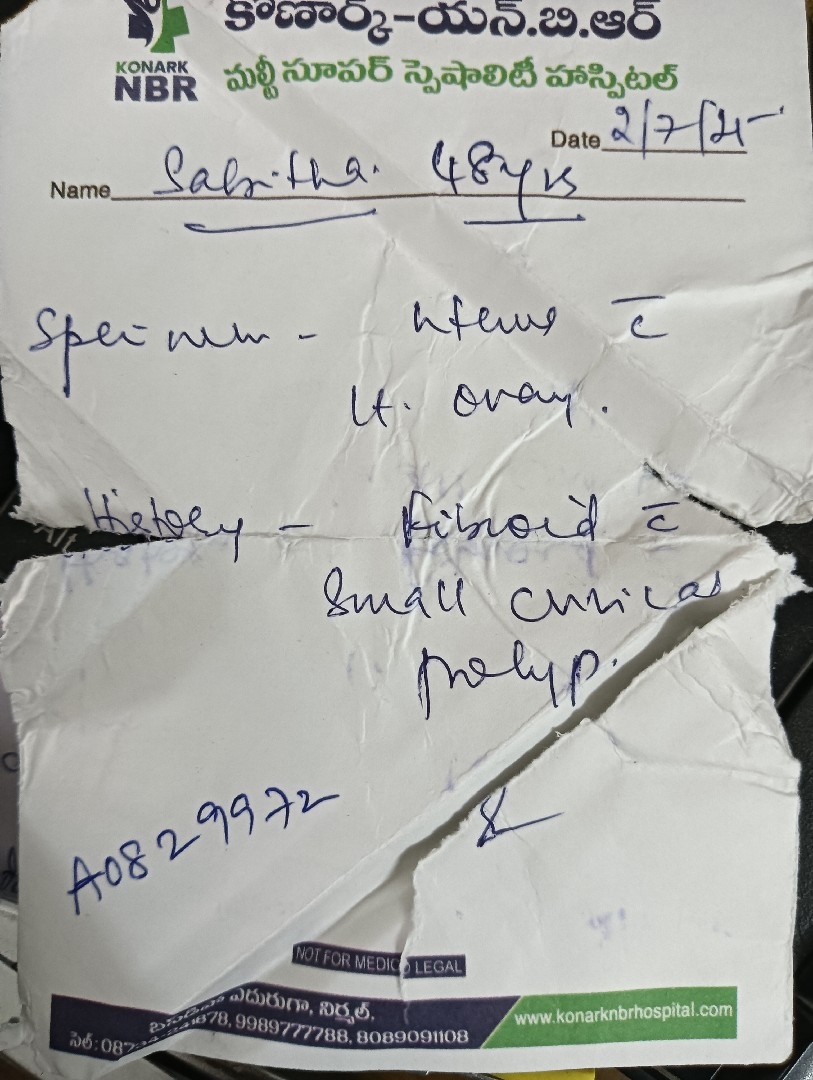 కోణార్క్-యన్.బి.ఆర్
KONARK
NBR
మల్టీ సూపర్ స్పెషాలిటీ హాస్పిటల్
Date 2/7/25
Name Sabritha. 48yrs
Specimen - Uterus c̄
Lt. ovary.
History - Fibroid c̄
Small cervical
polyp.
A0829972
NOT FOR MEDICO LEGAL
ఎదురుగా, నిర్మల్.
సెల్: 9989777788, 8089091108
www.konarknbrhospital.com